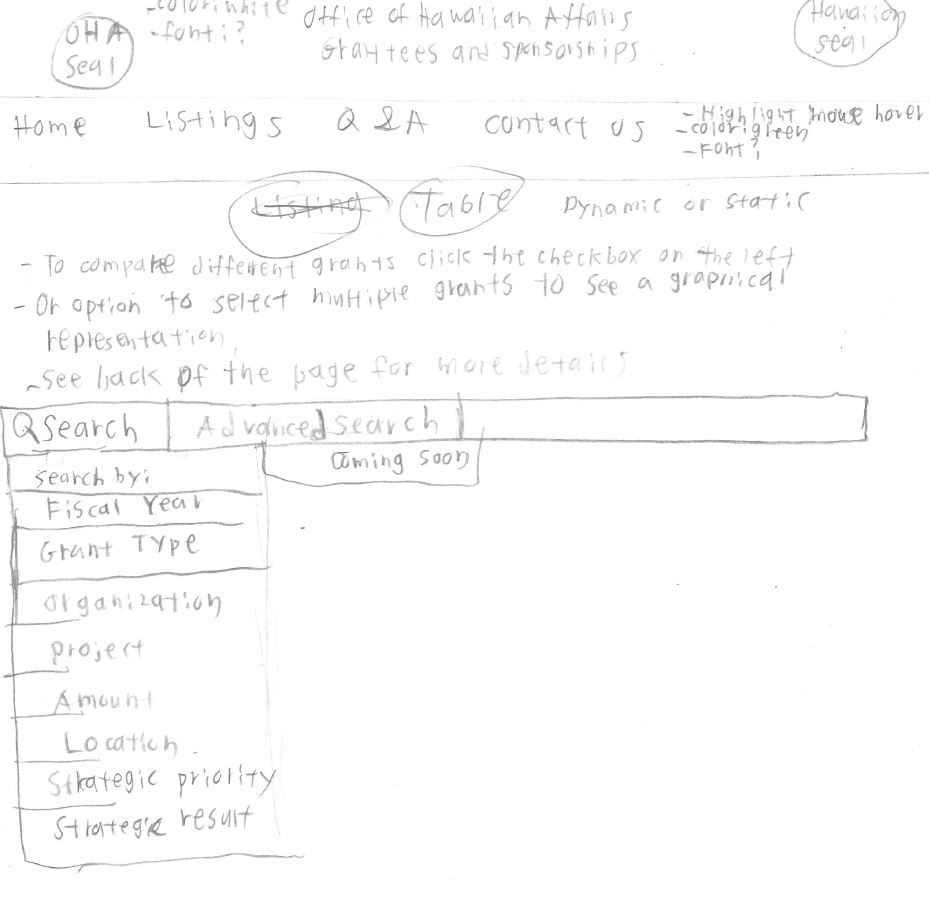 - color: white
Office of Hawaiian Affairs
Hawaiian
OHA
- font: ?
Grantees and sponsorships
seal
Seal
Home Listings Q & A contact us
- Highlight mouse hover
- color: green
- Font?
Listing Table Dynamic or static
- To compare different grants click the checkbox on the left
- Or option to select multiple grants to see a graphical
representation
- see back of the page for more details
Q Search Advanced Search
Coming soon
search by:
Fiscal Year
Grant Type
Organization
project
Amount
Location
Strategic priority
Strategic result